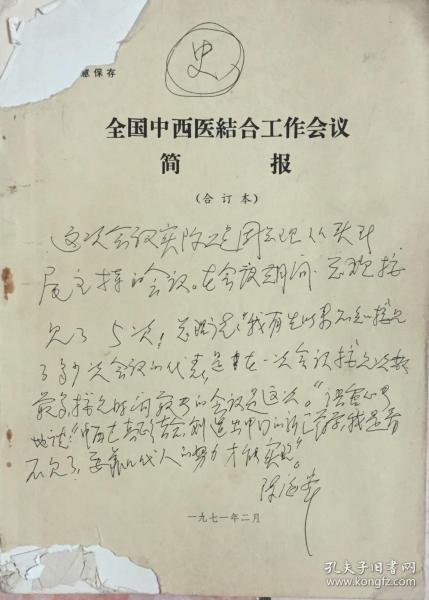 意保存
史
全国中西医結合工作会议
简 报
（合订本）
这次会议实际上是周总理从头到
尾主持的会议。在会议期间总理接
见了5次，总理说："我有生以来不知接见
了多少次会议的代表，是在一次会议接见次数
最多，接见时间最长的会议是这次。"语重心长
地说："中西医结合创造出中国的新医药学，我是看
不见了，要靠几代人的努力才能实现"。
陈海峰
一九七一年二月
孔夫子旧书网
www.kongfz.com